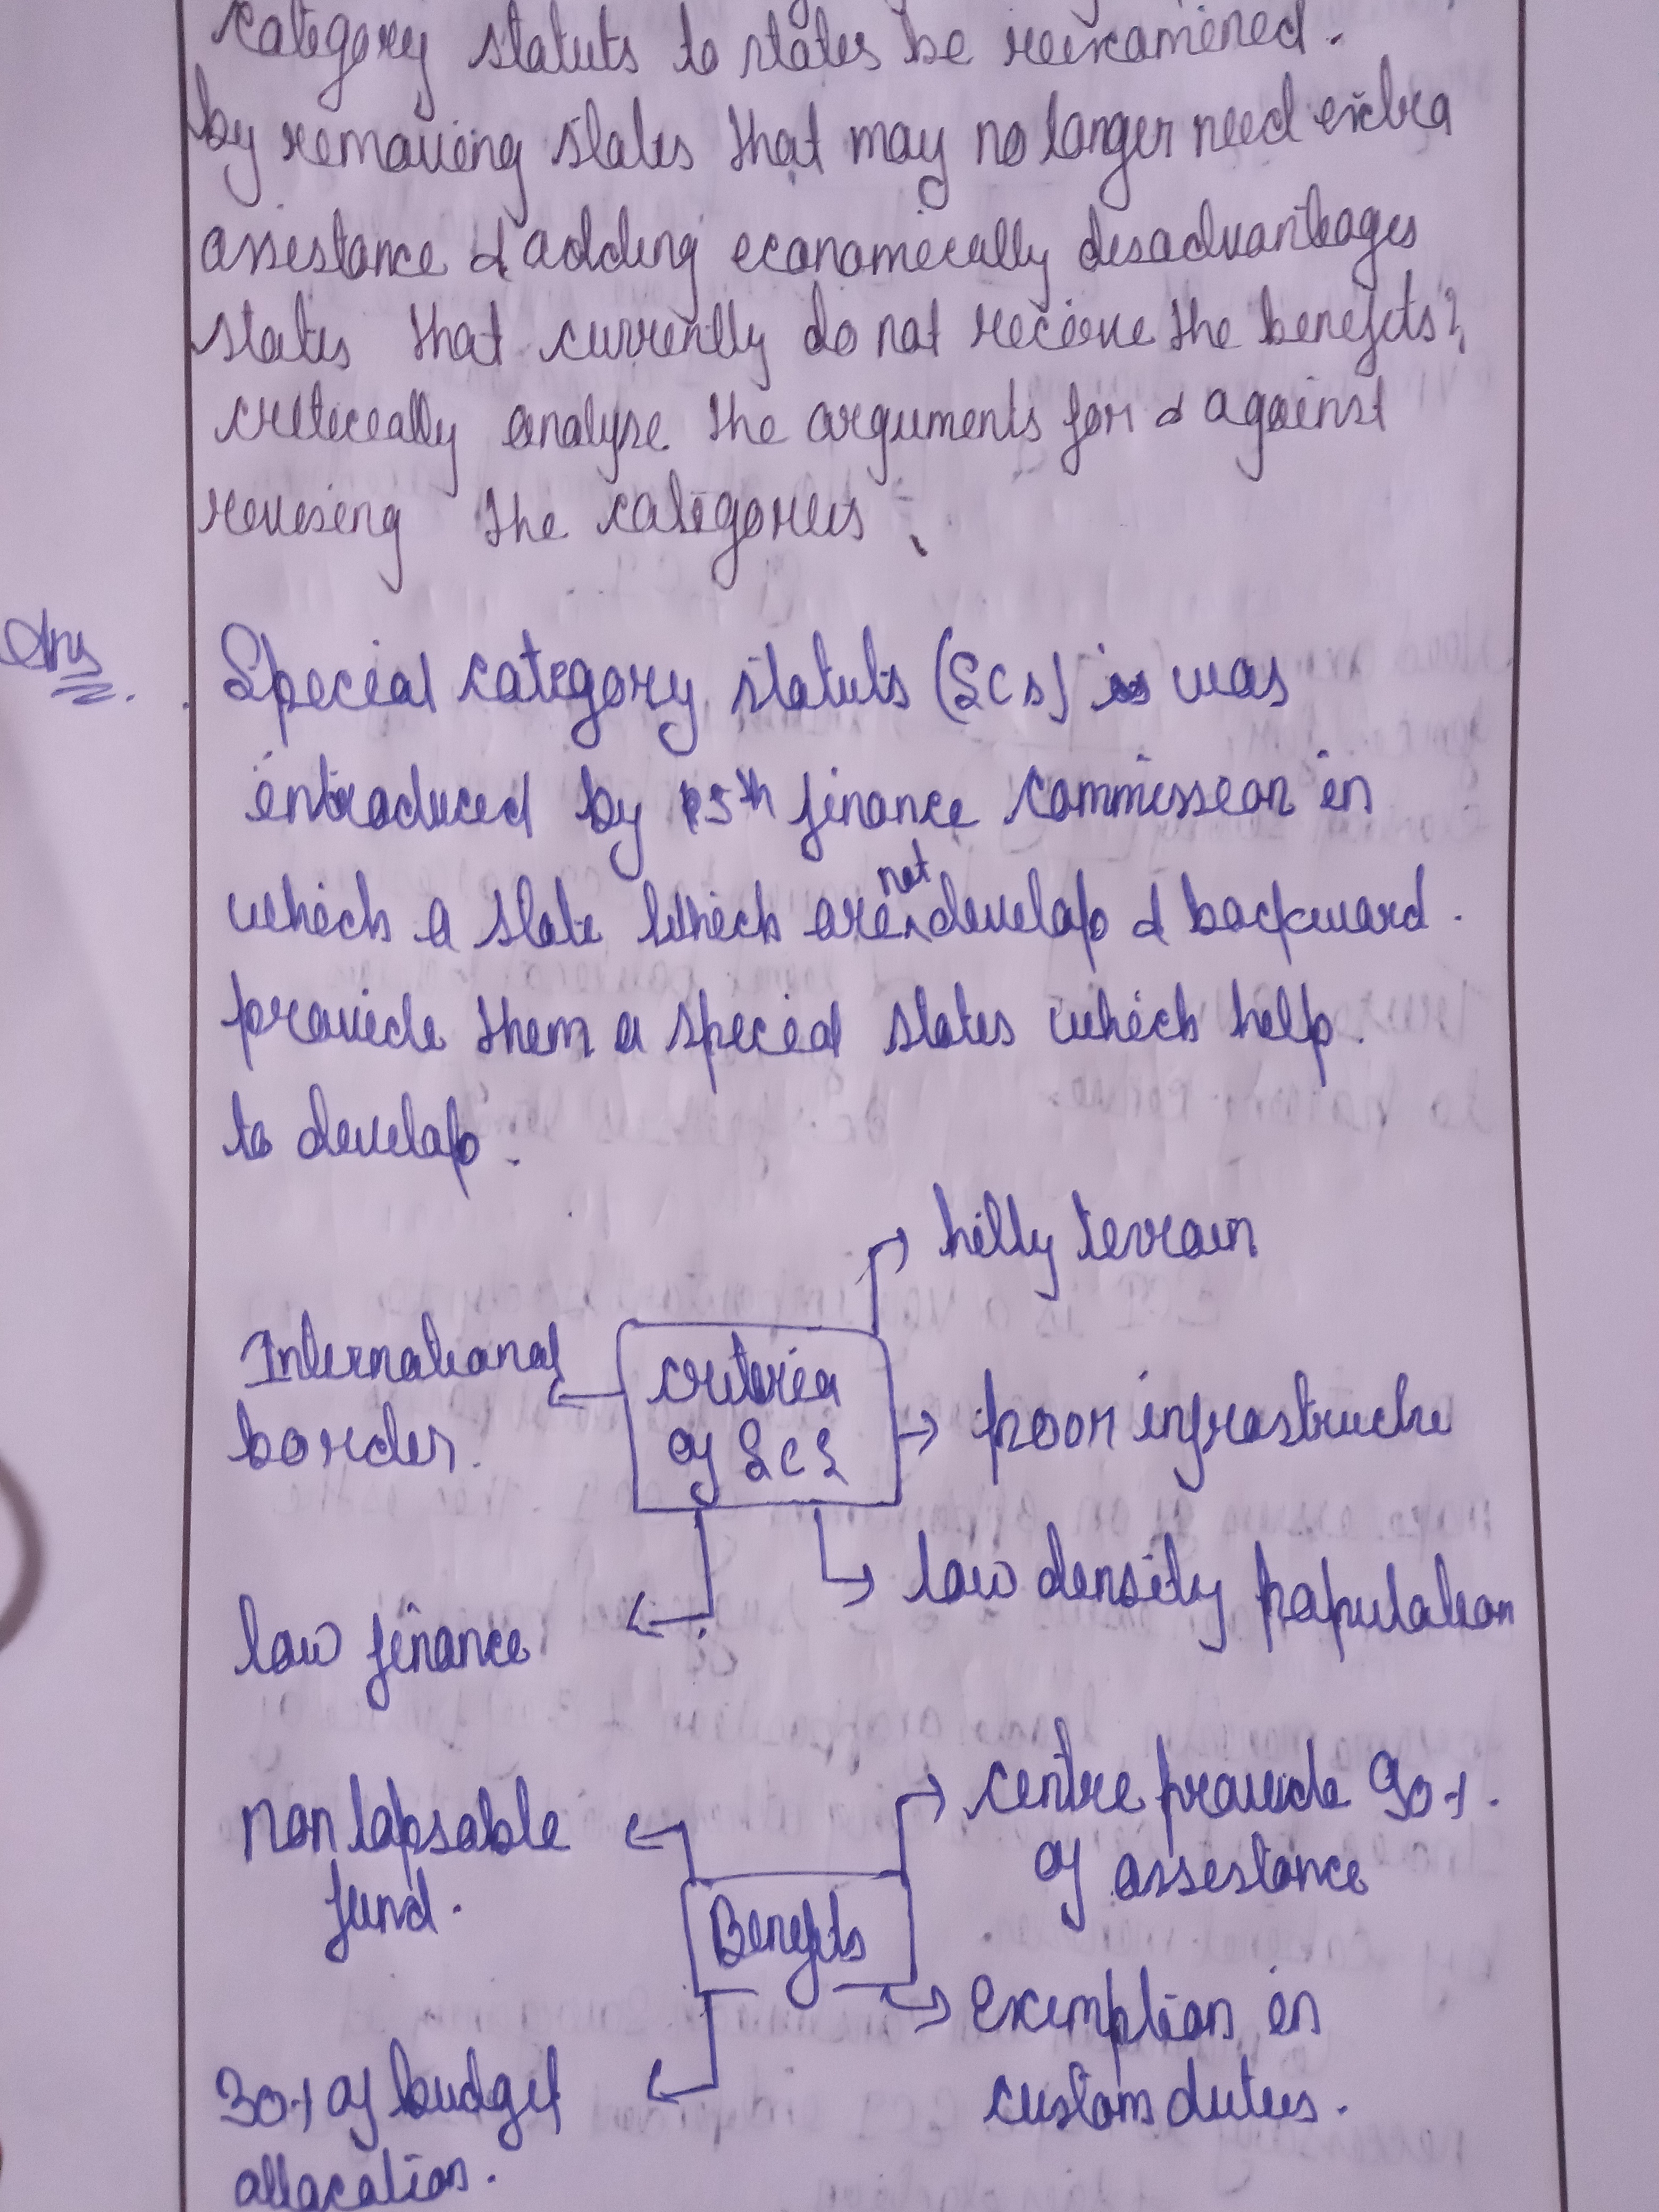 category statuts to states be reexamened.
by removeing states that may no longer need exibra
assestance & adding economecally desadvantages
states that currently do not receeve the benefits?
creteceally analyse the arguments for & against
reveseng the categories.
Ans
Special category statuts (SCS) was
entroduced by 5th finance commession in
which a state which are not develop & backward.
proveede them a special states which help
to develop.
hilly terrain
International
border.
criteria
of SCS
poor infrastructre
low density population
low finance
non lapsable
fund.
centre proveede 90%.
of assestance
Benefits
Exemption in
custom duties.
30% of budget
allocation.